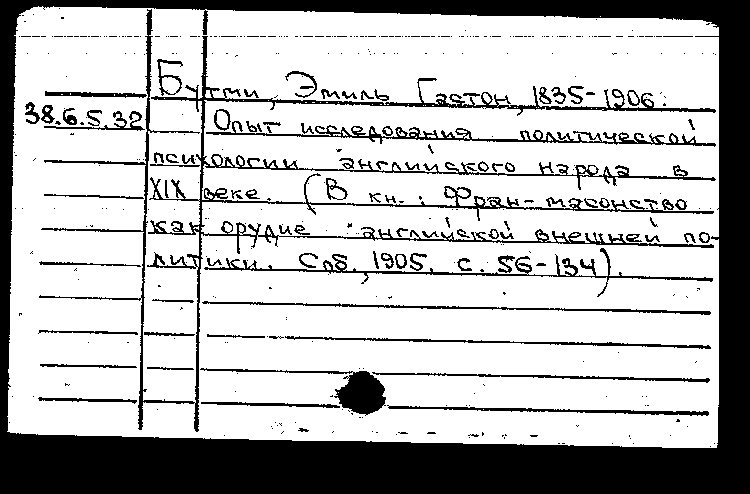 Бутми, Эмиль Гастон, 1835-1906.
38.6.5.32 Опыт исследования политической
психологии английского народа в
XIX веке. (В кн.: Фран-масонство
как орудие английской внешней по-
литики. Спб., 1905. с. 56-134).